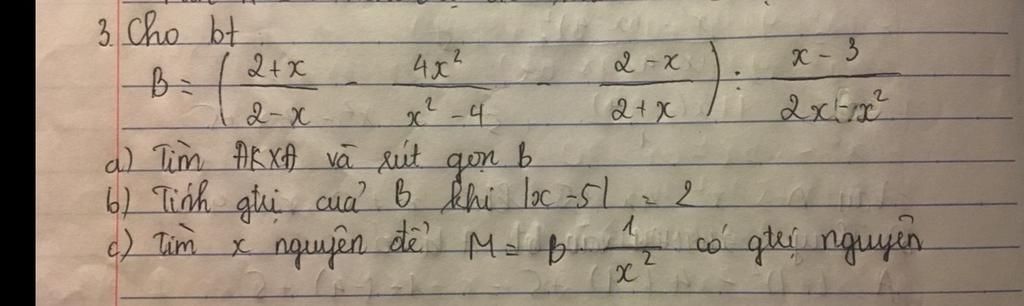 3. Cho bt
B = ( (2+x)/(2-x) - 4x²/(x²-4) - (2-x)/(2+x) ) : (x-3)/(2x-x²)
a) Tìm ĐKXĐ và rút gọn B
b) Tính gtrị của B khi |x-5| = 2
c) Tìm x nguyên để M = B 1/x² có gtrị nguyên